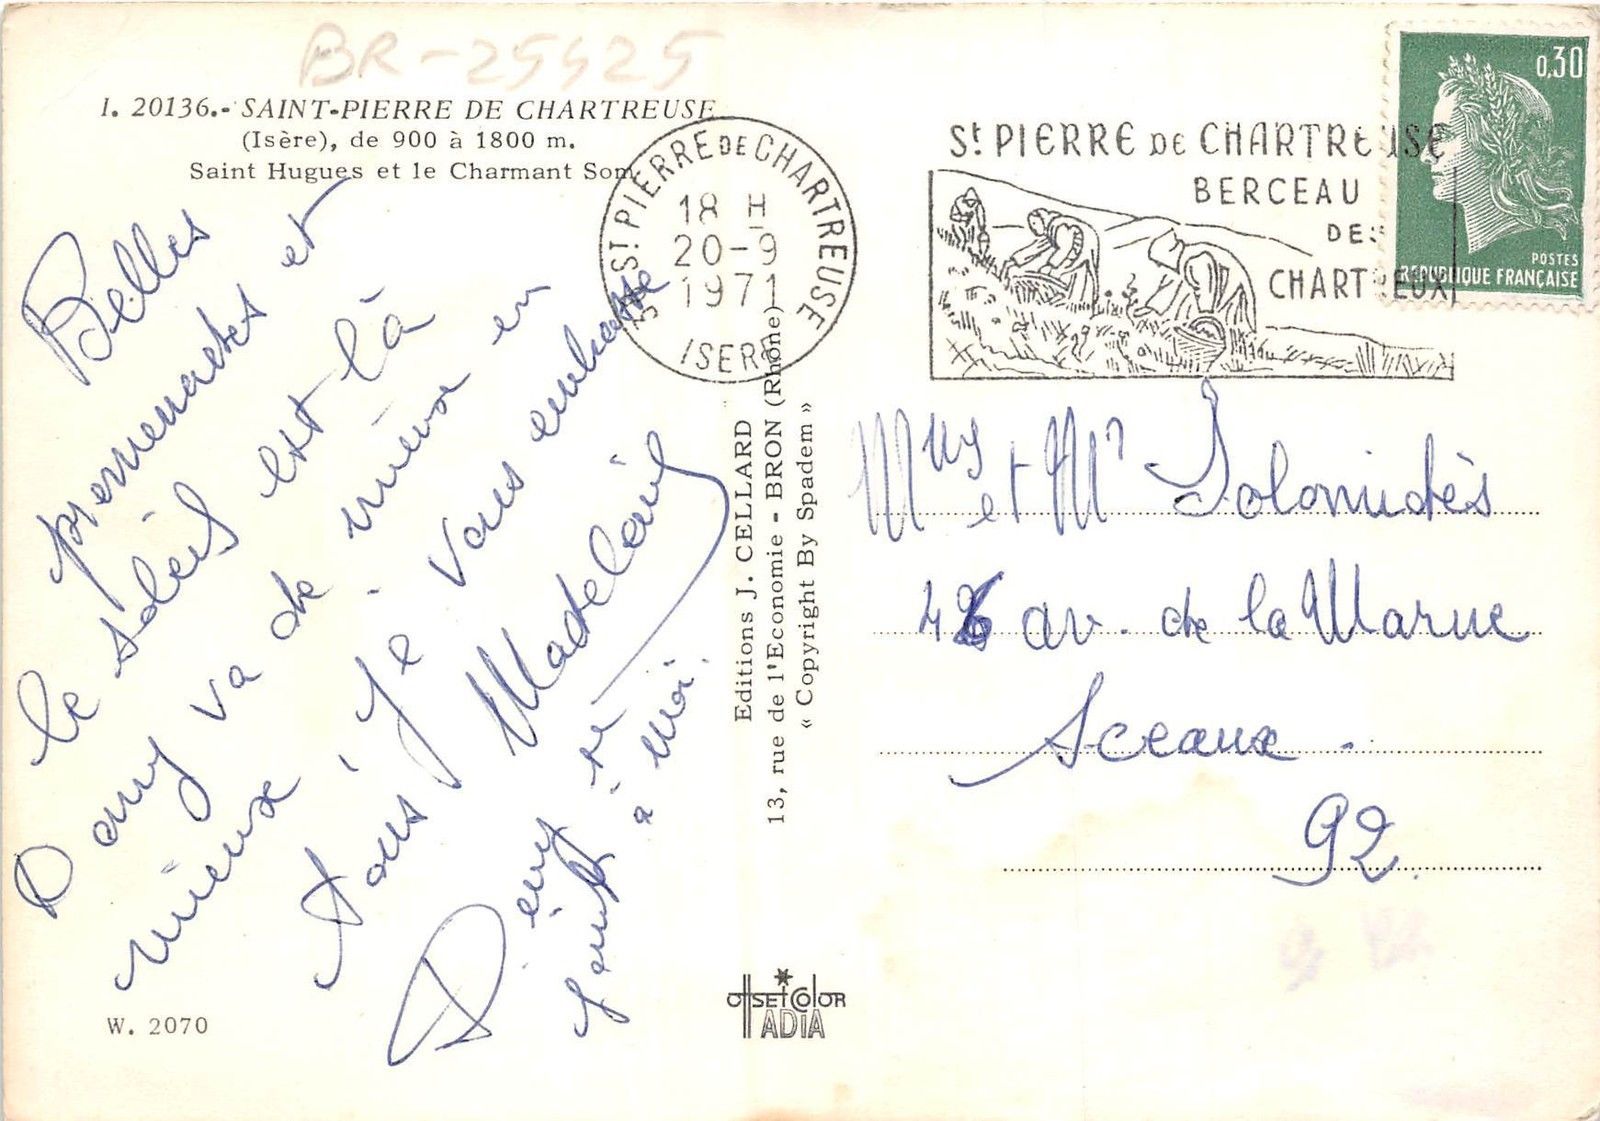 BR-25525
I. 20136.- SAINT-PIERRE DE CHARTREUSE
(Isère), de 900 à 1800 m.
Saint Hugues et le Charmant Som
Belles
promenades et
le soleil est là
Dany va de mieux en
mieux. Je vous embrasse
tous Madeleine
Dany se
joint
à moi.
W. 2070
38 St PIERRE DE CHARTREUSE
18 H
20-9
1971
ISERE
St PIERRE DE CHARTREUSE
BERCEAU
DES
CHARTREUX
0,30
POSTES
REPUBLIQUE FRANÇAISE
Editions J. CELLARD
13, rue de l'Economie - BRON (Rhône)
« Copyright By Spadem »
OFFSET COLOR
IADIA
et Mr Solomidès
46 av. de la Marne
Sceaux.
92.